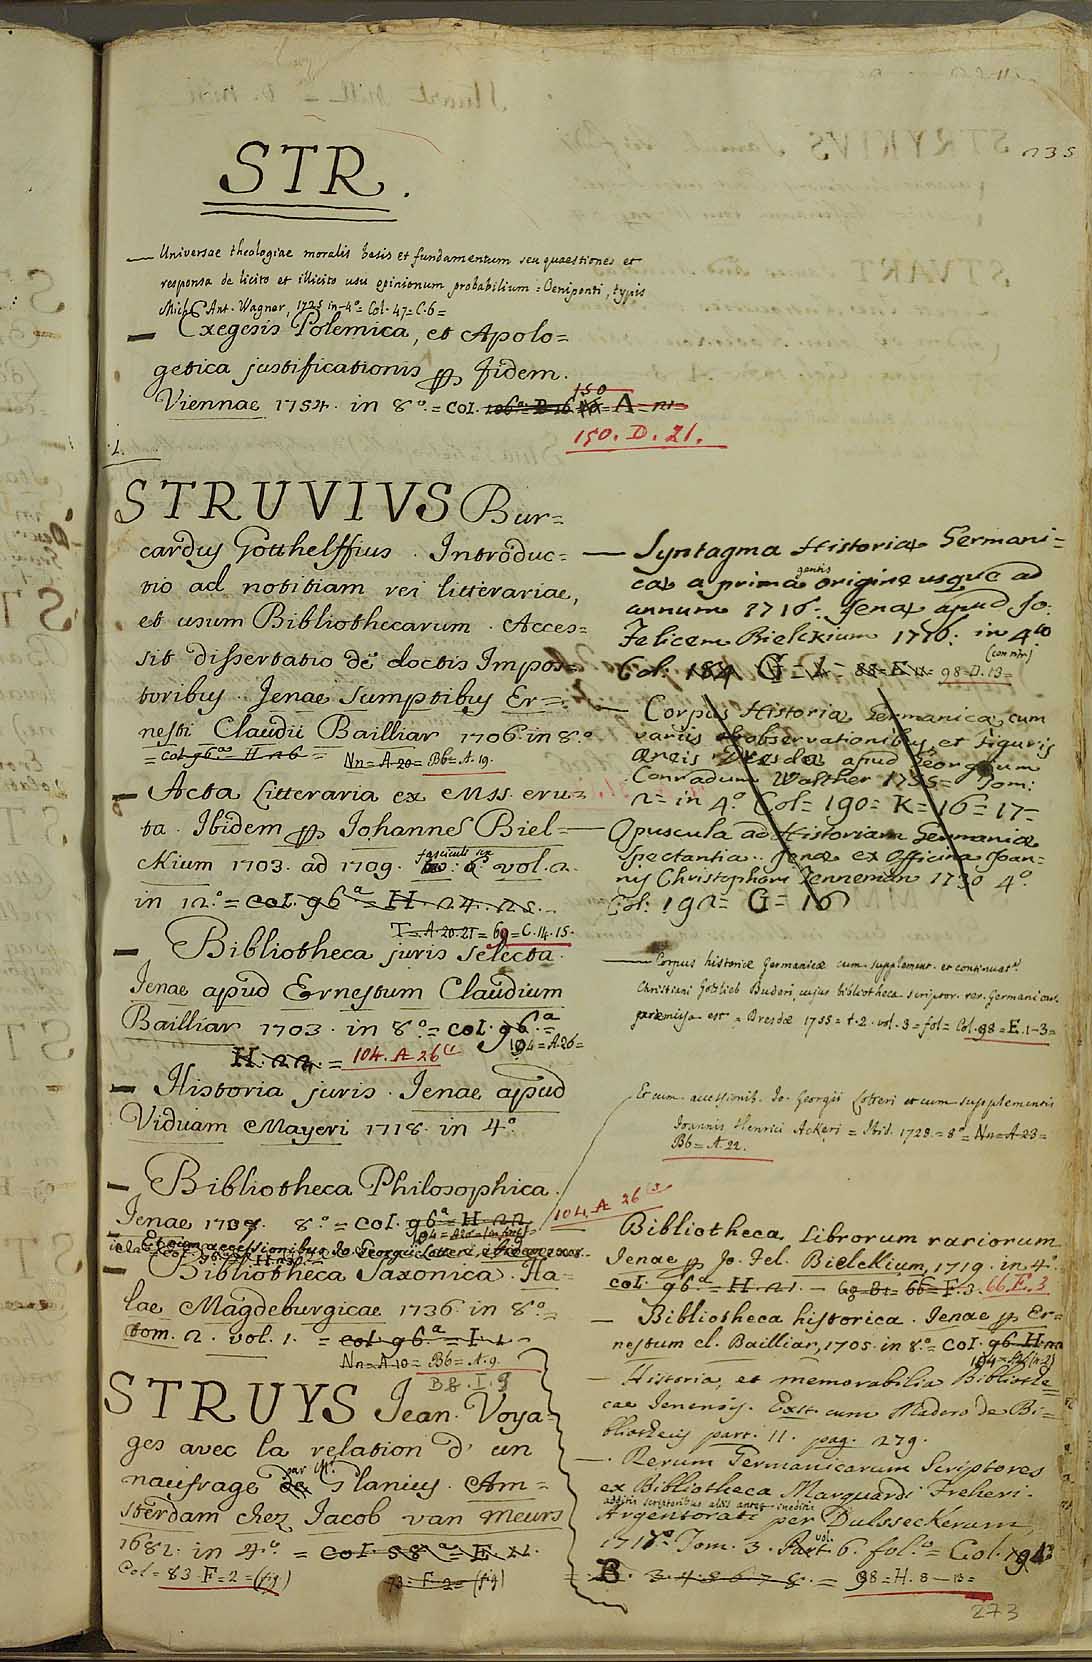 235
STR.
— Universae theologiae moralis basis et fundamentum seu quaestiones et
responsa de licito et illicito usu opinionum probabilium = Oeniponti, typis
Mich. Ant. Wagner, 1725 in 4º = Col. 47 = C. 6 =
— Exegesis Polemica, et Apolo=
getica justificationis per fidem.
Viennae 1754. in 8º. = col. 106ª = D 26 150 = A = 21 =
150. D. 21.
STRUVIVS Bur=
cardus Gotthelffius. Introduc=
tio ad notitiam rei litterariae,
et usum Bibliothecarum. Acces=
sit dissertatio de doctis Impos=
toribus. Jenae sumptibus Er=
nesti Claudii Bailliar 1706 in 8º
= col. 96ª = H. 26 = Nn = A. 20 = Bb = A. 19.
— Acta Litteraria ex Mss. eru=
ta. Ibidem per Johannes Biel=
ckium 1703. ad 1709. fasciculi vol. 2.
in 12º = col. 96ª = H. 24. 25.
T = A. 20. 21 = 69 = C. 14. 15.
— Bibliotheca juris selecta.
Jenae apud Ernestum Claudium
Bailliar 1703. in 8º = col. 96.ª =
104 = A. 26 =
H. 22. = 104. A 26
— Historia juris. Jenae apud
Viduam Mayeri 1718. in 4º
— Bibliotheca Philosophica.
Jenae 8º = col. 96ª = H. 22
Et cum accessionibus Jo. Georgii Lotteri
— Bibliotheca Saxonica. Ha=
lae Magdeburgicae 1736. in 8º =
tom. 2. vol. 1. = col. 96.ª = I. 1 -
Nn = A. 10 = Bb = A. 9.
BB. I. 9
STRUYS Jean. Voya=
ges avec la relation d'un
naufrage de par Mr. Glanius. Am=
sterdam chez Jacob van Meurs
1681. in 4º = col. 58ª = E. 11.
Col = 83. F = 2 = (fig)
73 = F. 2 = (fig)
— Syntagma Historiae Germani=
cae a prima gentis origine usque ad
annum 1716. Jenae apud Jo.
Felicem Bielckium 1716. in 4to
(con ritr)
Col: 184 G = 4 = 88 = E 11 = 98 = D. 13 =
— Corpus Historiae Germanicae cum
variis observationibus, et figuris
aeneis Dresdae apud Georgium
Conradum Walther 1755 = Tom:
2 = in 4º Col = 190 = K = 16 = 17 =
— Opuscula ad Historiam Germaniae
spectantia. Jenae ex officina Joan=
nis Christophori Tenneman 1730 4º
Col: 192 = G = 16
— Corpus historiae Germanicae cum supplement. et continuat.
Christiani Gottlieb Buderi, cujus bibliotheca scriptor. rer. Germanicar.
praemissa est = Dresdae 1755 = t. 2. vol. 3 = fol = Col. 98 = E. 1 - 3 =
Et cum accessionib. Jo. Georgii Lotteri et cum supplementis
Joannis Henrici Ackeri = Ibid. 1728. = 8º = Nn = A 23 =
Bb = A. 22.
104. A 26
Bibliotheca Librorum rariorum
Jenae per Jo. Fel. Bielckium, 1719. in 4º.
col. 96.ª = H. 21. - 66 = F. 3. 66. F. 3
— Bibliotheca historica. Jenae per Er=
nestum cl. Bailliar, 1705. in 8º = col. 96 H 22
— Historia, et memorabilia Bibliothe=
cae Jenensis. Exst. cum Madero de Bi=
bliothecis part. II. pag. 279.
— Rerum Germanicarum Scriptores
ex Bibliotheca Marquardi Freheri.
additis scriptoribus aliis antea ineditis
Argentorati per Dulsseckerum
Tom. 3. Part. vol. 6. fol.º = Col. 194
B. 3. 4. 5. 6. 7. 8. = 98 = H. 8 — 13 =
273